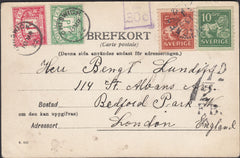 BREFKORT
(Carte postale)
(Denna sida användes endast för adresseringen.)
SVERIGE
10
SVERIGE
Herr Bengt Lundqvist
114 St. Albans Av.
Bedford Park
om den kan uppgifvas)
Adressort
London
England